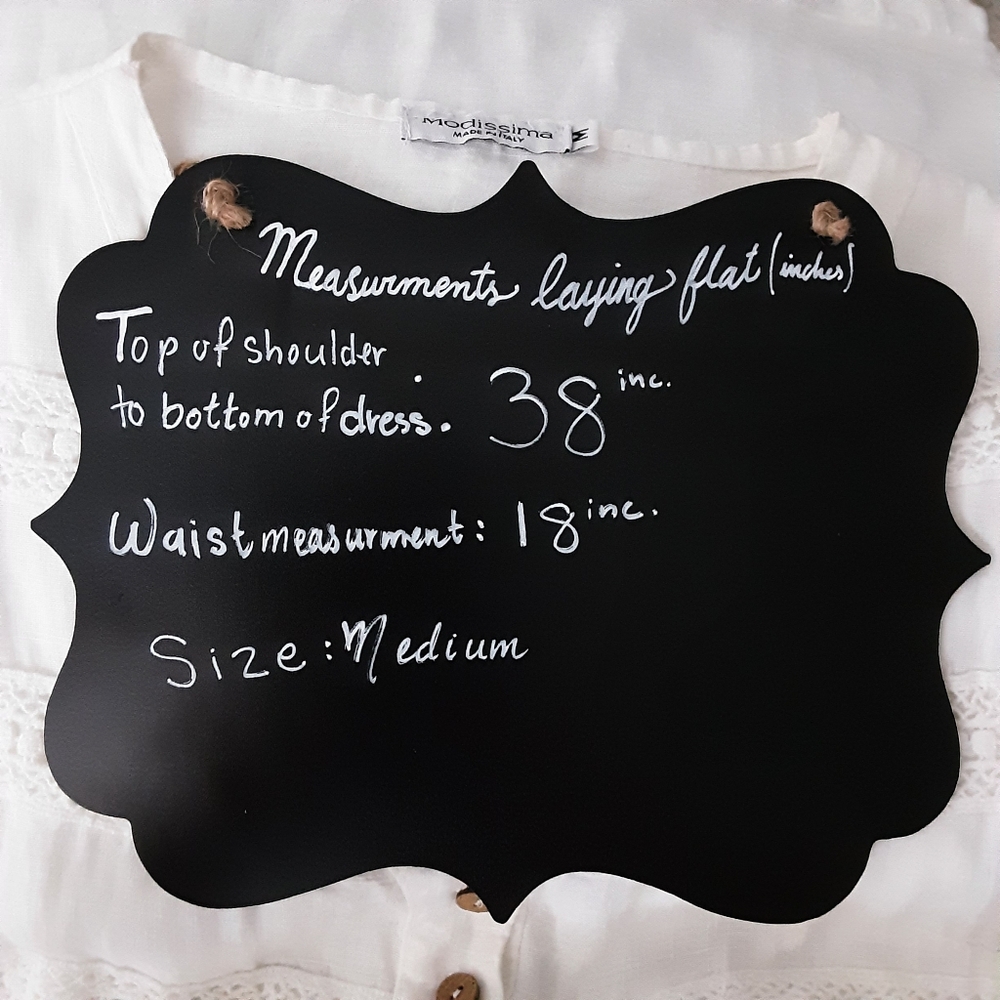 Modissima
MADE IN ITALY
M
Measurments laying flat (inches)
Top of shoulder
to bottom of dress. 38 inc.
Waist measurment: 18 inc.
Size: Medium